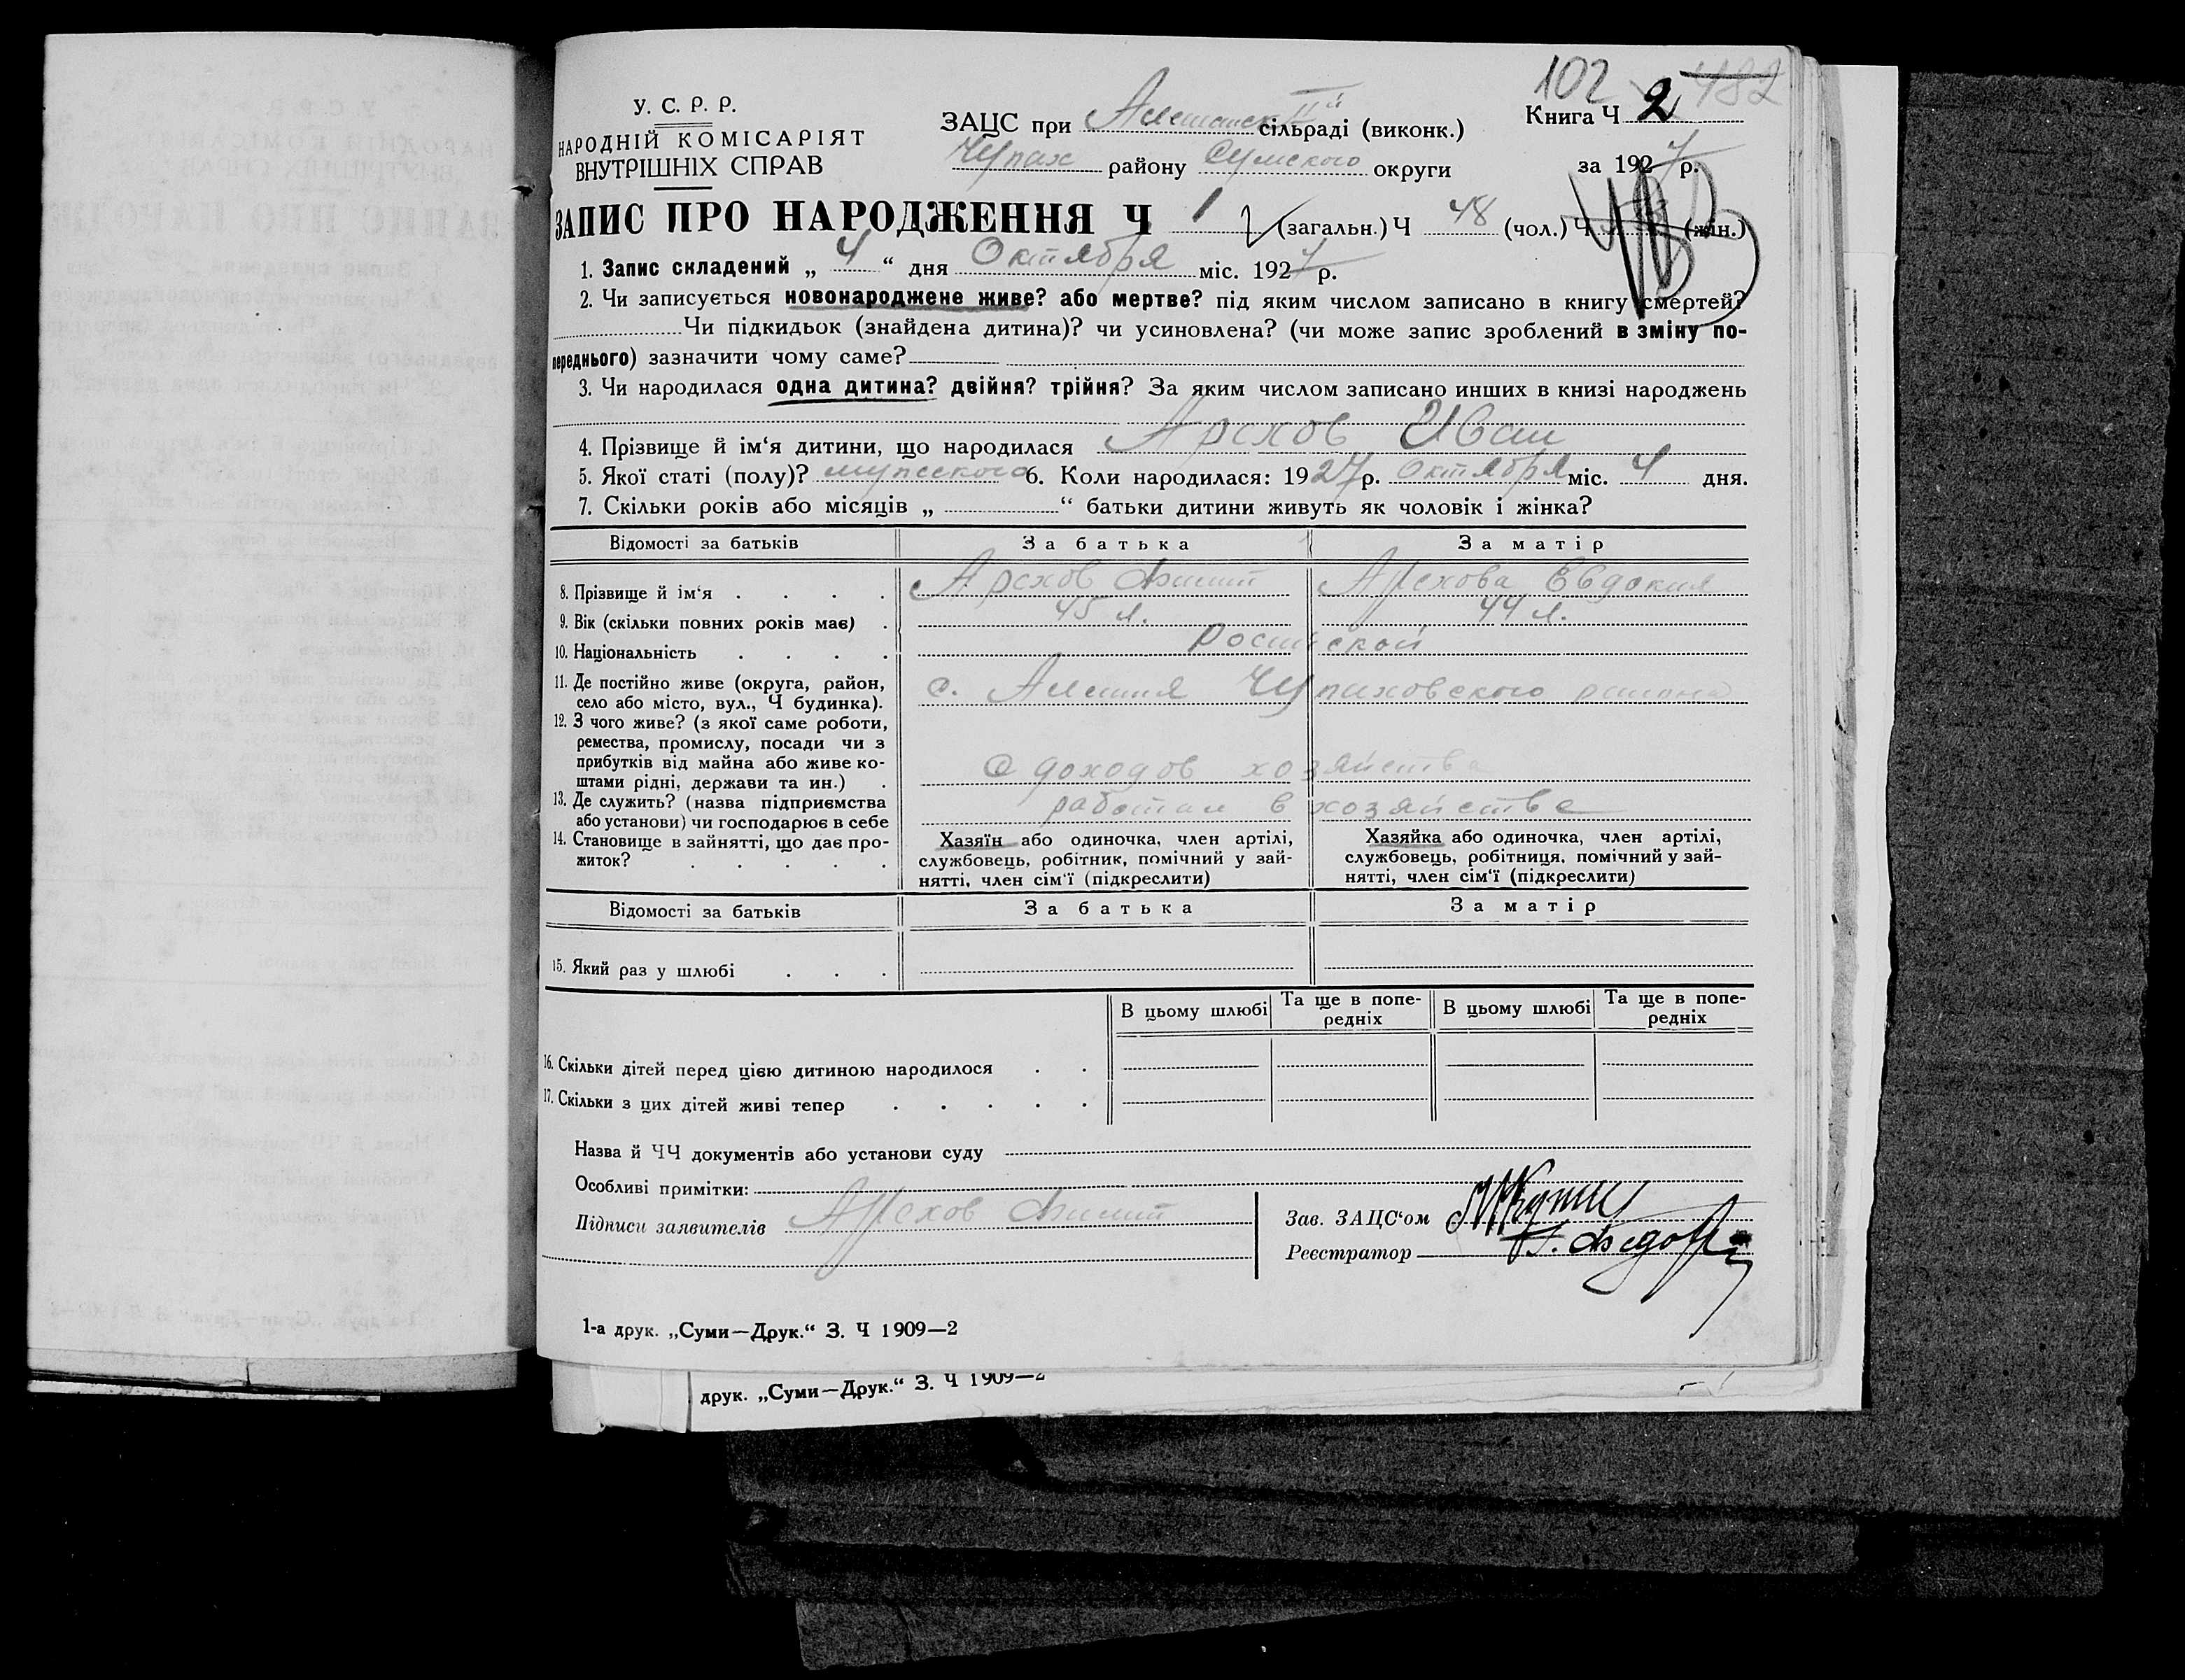 102 482
У. С. Р. Р.
НАРОДНІЙ КОМІСАРІЯТ
ВНУТРІШНІХ СПРАВ
ЗАЦС при сільраді (виконк.)
Чупах району Сумского округи
Книга Ч 2
за 1927 р.
ЗАПИС ПРО НАРОДЖЕННЯ Ч 1 (загальн.) Ч 48 (чол.) Ч (жін.)
1. Запис складений „ 4 “ дня Октября міс. 1927 р.
2. Чи записується новонароджене живе? або мертве? під яким числом записано в книгу смертей?
Чи підкидьок (знайдена дитина)? чи усиновлена? (чи може запис зроблений в зміну по-
переднього) зазначити чому саме?
3. Чи народилася одна дитина? двійня? трійня? За яким числом записано инших в книзі народжень
4. Прізвище й ім‘я дитини, що народилася Арехов Иван
5. Якої статі (полу)? мужеского 6. Коли народилася: 1927 р. Октября міс. 4 дня.
7. Скільки років або місяців „ “ батьки дитини живуть як чоловік і жінка?
Відомості за батьків За батька За матір
8. Прізвище й ім‘я . . . . Арехов Филип Арехова Евдокия
9. Вік (скільки повних років має) . 45 л. 44 л.
10. Національність . . . .
11. Де постійно живе (округа, район,
село або місто, вул., Ч будинка).
с. Алешня Чупаховского района
12. З чого живе? (з якої саме роботи,
ремества, промислу, посади чи з
прибутків від майна або живе ко-
штами рідні, держави та ин.) .
С доходов хозяйства
13. Де служить? (назва підприємства
або установи) чи господарює в себе
работал в хозяйстве
14. Становище в зайнятті, що дає про-
житок? . . . . .
Хазяїн або одиночка, член артілі,
службовець, робітник, помічний у зай-
нятті, член сім‘ї (підкреслити)
Хазяйка або одиночка, член артілі,
службовець, робітниця, помічний у зай-
нятті, член сім‘ї (підкреслити)
Відомості за батьків За батька За матір
15. Який раз у шлюбі . . .
В цьому шлюбі Та ще в попе-
редніх В цьому шлюбі Та ще в попе-
редніх
16. Скільки дітей перед цією дитиною народилося . .
17. Скільки з цих дітей живі тепер . . . . .
Назва й ЧЧ документів або установи суду
Особливі примітки:
Підписи заявителів Арехов Филип
Зав. ЗАЦС‘ом
Реєстратор
1-а друк. „Суми—Друк.“ З. Ч 1909—2
друк. „Суми—Друк.“ З. Ч 1909—2